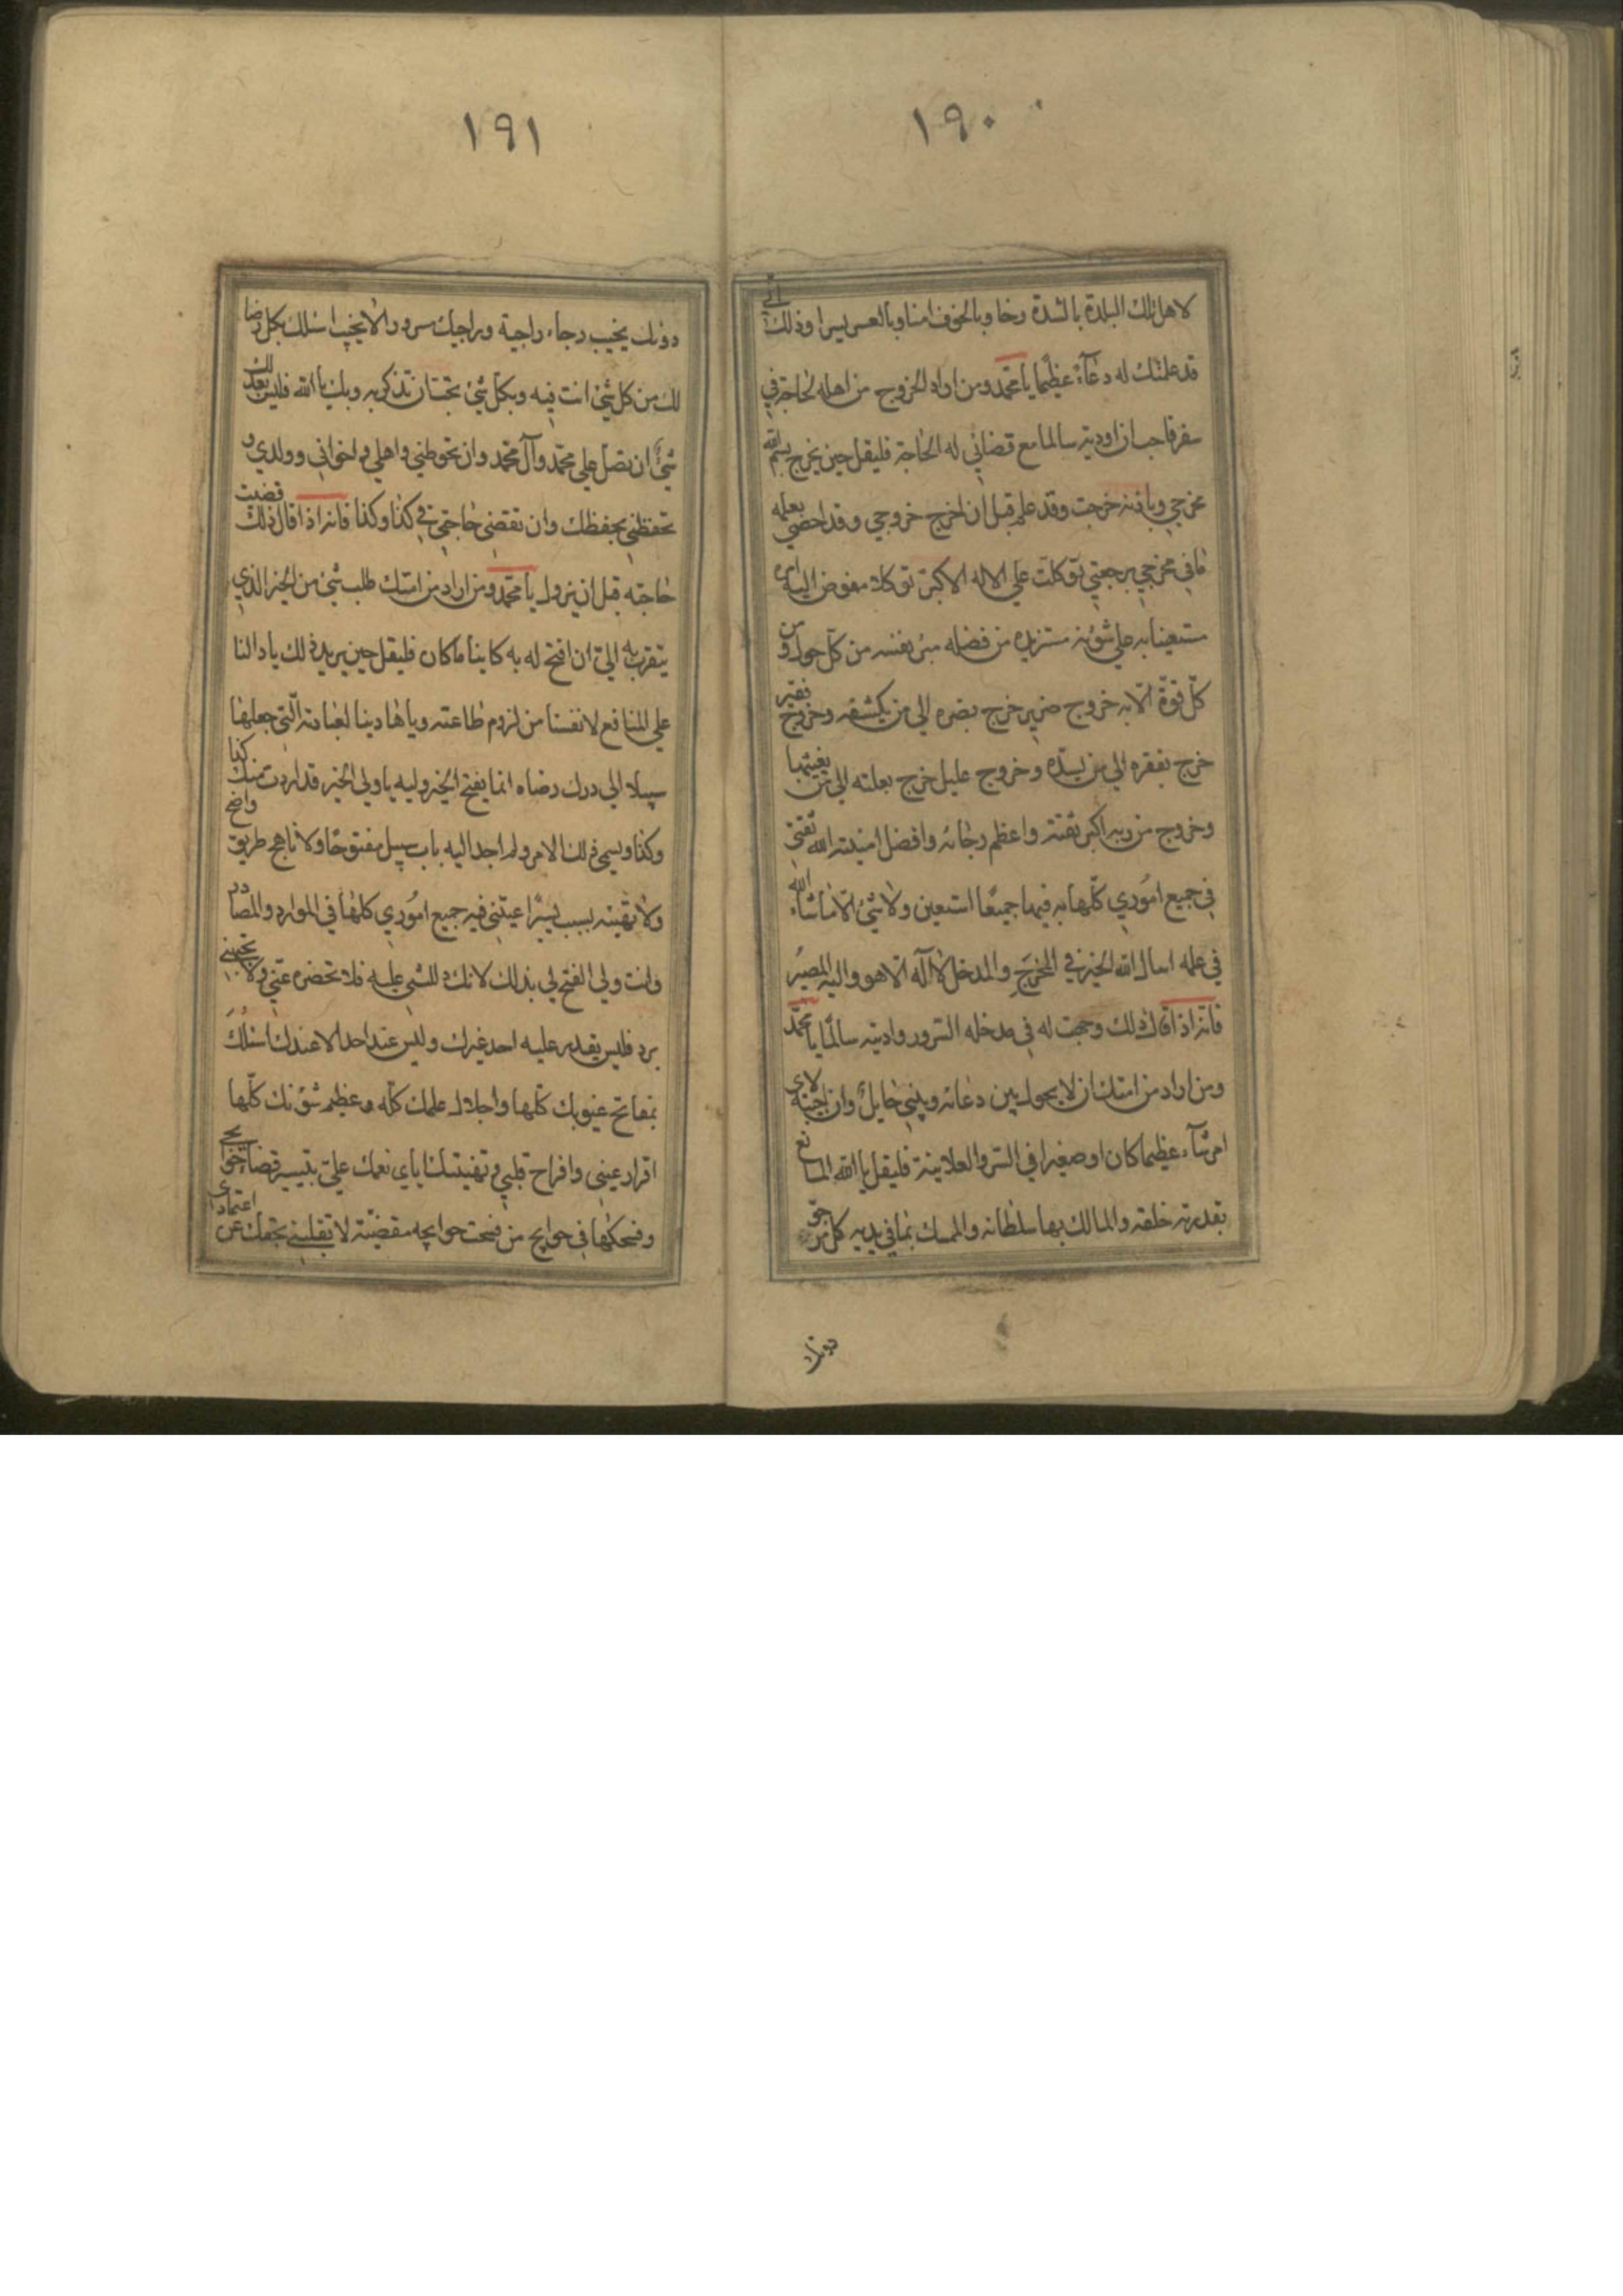 ١٩٠
لاهل تلك البلدة بالشدة رخا وبالخوف امنا وبالعسر يسرا وذلك اني
قد علمتك له دعاء عظيما يا محمد ومن اراد الخروج من اهله لحاجة في
سفر فاحب ان اوديه سالما مع قضائي له الحاجة فليقل حين يخرج بسم الله
مخرجي وباذنه خرجت وقد علم قبل ان اخرج خروجي وقد احصى بعلمه
ما في مخرجي ورجعتي توكلت علي الاله الاكبر توكل مفوض اليه امره
مستعينا به علي شؤنه مستزيد من فضله مبرئ نفسه من كل حول و من
كل قوة الا به خروج ضرير خرج بضره الي من يكشفه وخروج فقير
خرج بفقره الي من يسده وخروج عليل خرج بعلته الي من يغيثها
وخروج من ربه اكبر ثقته واعظم رجائه وافضل امنيته الله ثقتي
في جميع اموري كلها به فيها جميعا استعين ولا شئ الا ما شاء الله
في علمه اسال الله الخير في المخرج والمدخل لا اله الا هو واليه المصير
فانه اذا قال ذلك وجهت له في مدخله السرور واديته سالما يا محمد
ومن اراد من امتك ان لا يحول بين دعائه وبيني حايل وان اجيبه لاي
امر شاء عظيما كان او صغيرا في السر والعلانية فليقل يا الله المانع
بقدرته خلقه والمالك بها سلطانه والمتسلط بما في يديه كل مرجو
دونك
١٩١
دونك يخيب رجاء راجيه وراجيك مسرور لا يخيب اسئلك بكل رضا
لك من كل شئ انت فيه وبكل شئ تحب ان تذكر به وبك يا الله فليس يعدلك
شئ ان تصل علي محمد وآل محمد وان تحوطني واهلي واخواني وولدي و
تحفظني بحفظك وان تقضي حاجتي في كذا وكذا فانه اذا قال ذلك قضيت
حاجته قبل ان يزول يا محمد ومن اراد من امتك طلب شئ من الخير الذي
يتقرب به الي ان افتح له به كاينا ما كان فليقل حين يريد ذلك يا دالنا
علي المنافع لانفسنا من لزوم طاعته ويا هادينا لعبادته التي جعلها
سبيلا الي درك رضاه انما يفتح الخير وليه يا ولي الخير قد اردت منك كذا
وكذا ويسمي ذلك الامر ولم اجد اليه باب سبيل مفتوحا ولا ناهج طريق واضح
ولا تهيئه بسبب يسير اعيتني فيه جميع اموري كلها في الموارد والمصادر
وانت ولي الفتح لي بذلك لانك دللتني عليه فلا تحضره عني ولا تجبهني
برد فليس يقدر عليه احد غيرك وليس عند احد الا عندك اسئلك
بمفاتح غيوبك كلها واجلال علمك كله وعظيم شؤنك كلها
اقرار عيني وافراح قلبي وتهنيتك اياي نعمك علي بتيسير قضاء حوايجي
وفسحكها في حوايج من فسحت حوايجه مقضية لا تقلبني بحقك عن اعتمادي